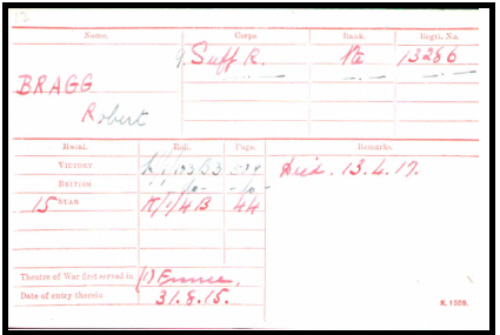 Name. Corps. Rank. Regtl. No.
9. Suff R. Pte 13286
BRAGG
Robert
Medal. Roll. Page. Remarks.
VICTORY Died. 13.4.17.
BRITISH
15 STAR K/1/4 B 44
Theatre of War first served in (1) France,
Date of entry therein 31.8.15.
K. 1380.